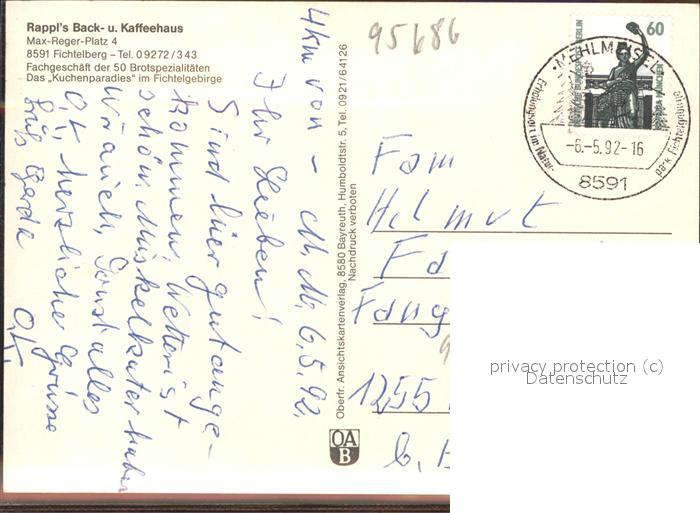 Rappl's Back- u. Kaffeehaus
Max-Reger-Platz 4
8591 Fichtelberg – Tel. 09272/343
Fachgeschäft der 50 Brotspezialitäten
Das „Kuchenparadies" im Fichtelgebirge
4 km von – M. M. 6.5.92.
Ihr Lieben!
Sind hier gut ange-
kommen, Wetter ist
schön. Muskelkater haben
wir auch, Sonst alles
O.K., herzliche Grüsse
Gerda O.K.
Oberfr. Ansichtskartenverlag, 8580 Bayreuth, Humboldtstr. 5, Tel. 0921/64126
Nachdruck verboten
OA
B
95686
60
DEUTSCHE BUNDESPOST BERLIN
BAVARIA MÜNCHEN
MEHLMEISEL
Erholungsort im Natur-
park Fichtelgebirge
-6.-5.92-16
8591
Fam
Helmut
Fa
Fang
1255
b. B
privacy protection (c)
Datenschutz